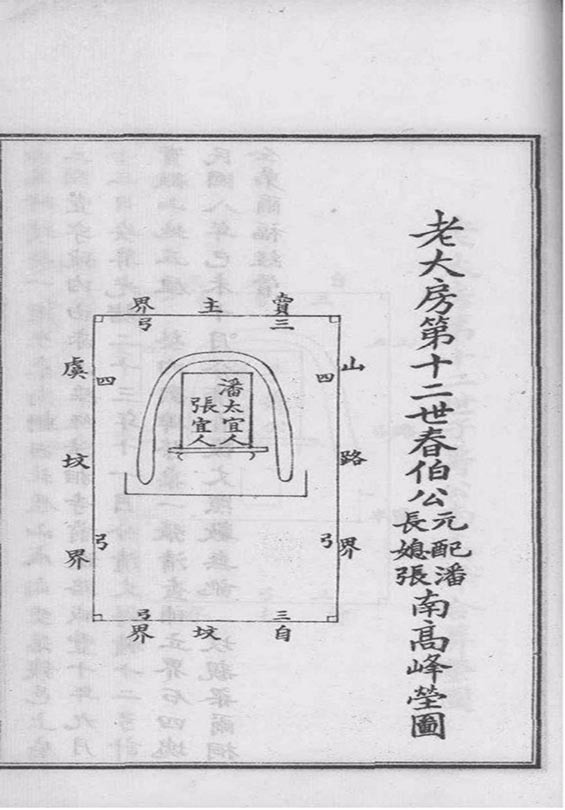 老大房第十二世春伯公元配潘長媳張南高峰塋圖
賣主界
三弓
山路界
四弓
潘太宜人
張宜人
虞坟界
四弓
自坟界
三弓